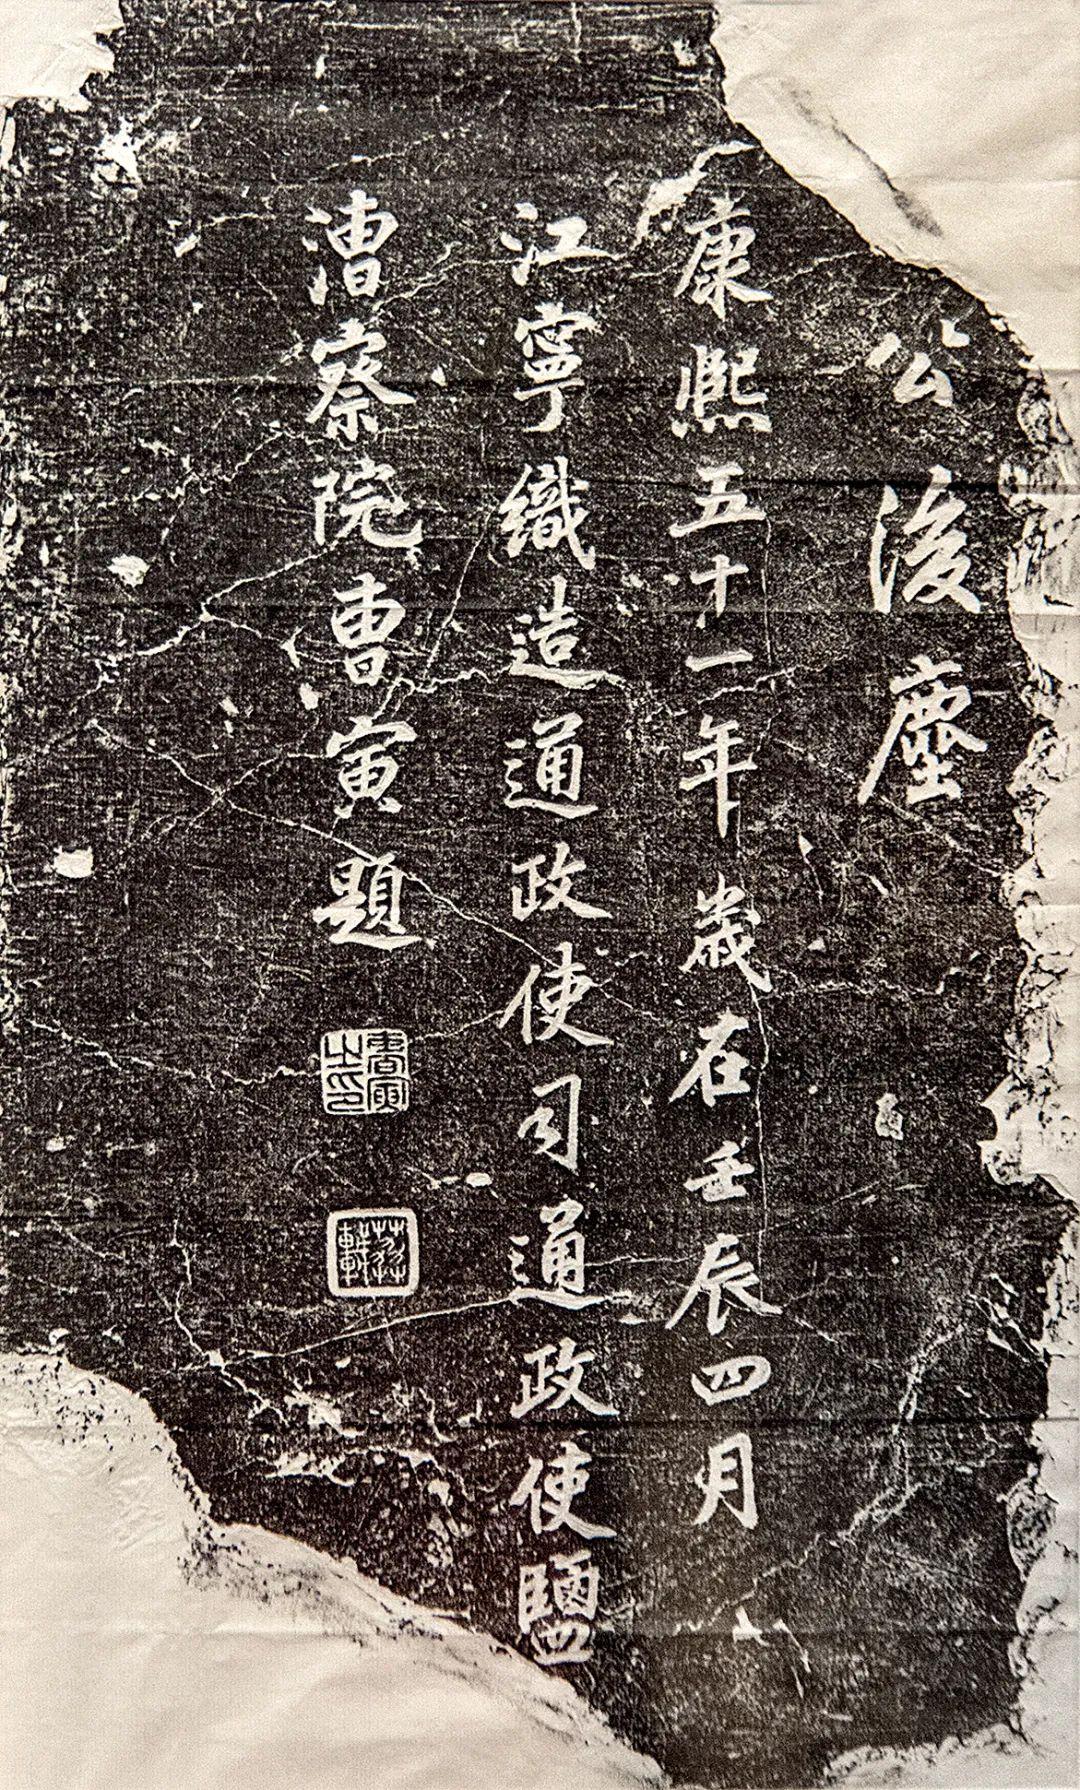 公後塵
康熙五十一年歲在壬辰四月
江寧織造通政使司通政使鹽
漕察院曹寅題
曹寅之印
荔軒